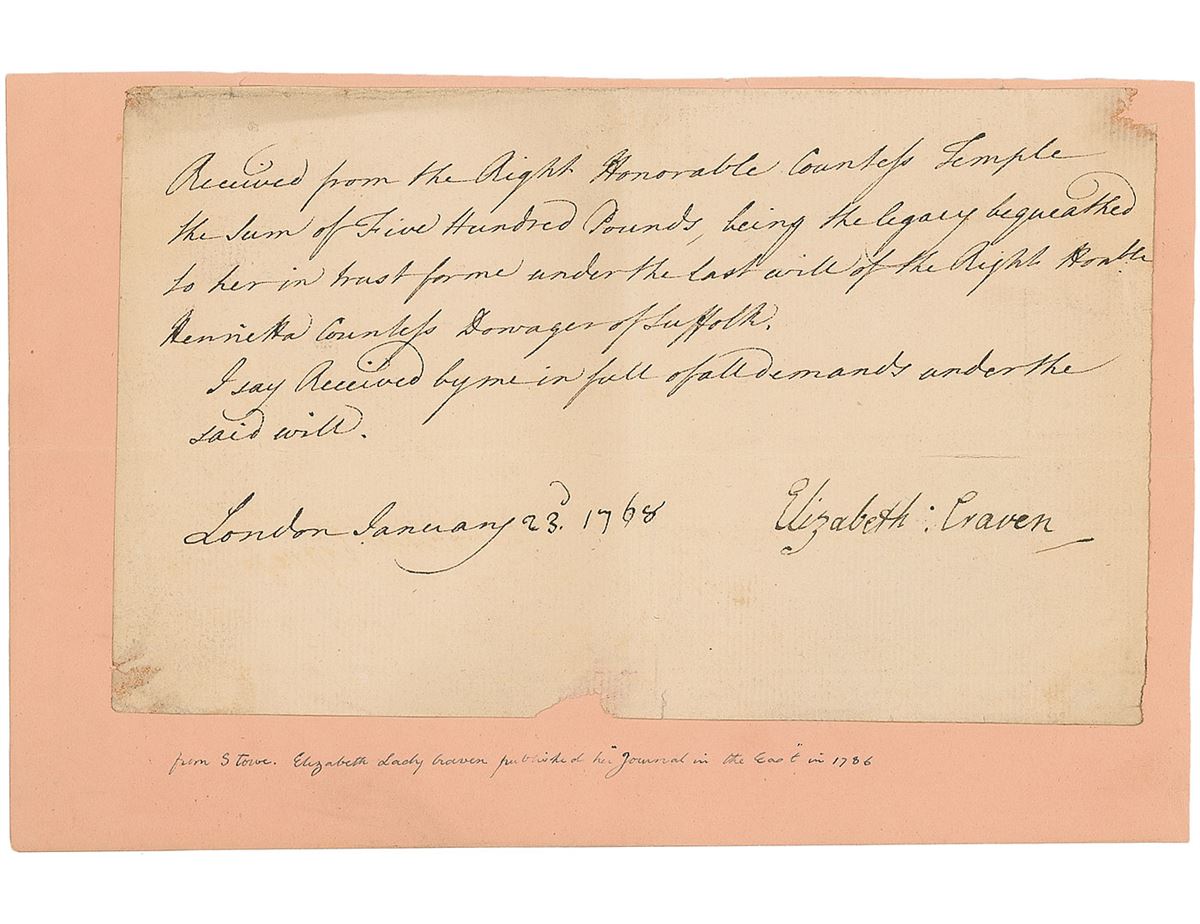 Received from the Right Honorable Countess Temple
the Sum of Five Hundred Pounds, being the legacy bequeathed
to her in trust for me under the last will of the Right Honble.
Henrietta Countess Dowager of Suffolk.
I say Received by me in full of all demands under the
said will.
London January 23d. 1768
Elizabeth : Craven
from Stowe. Elizabeth Lady Craven published her "Journal in the East" in 1786